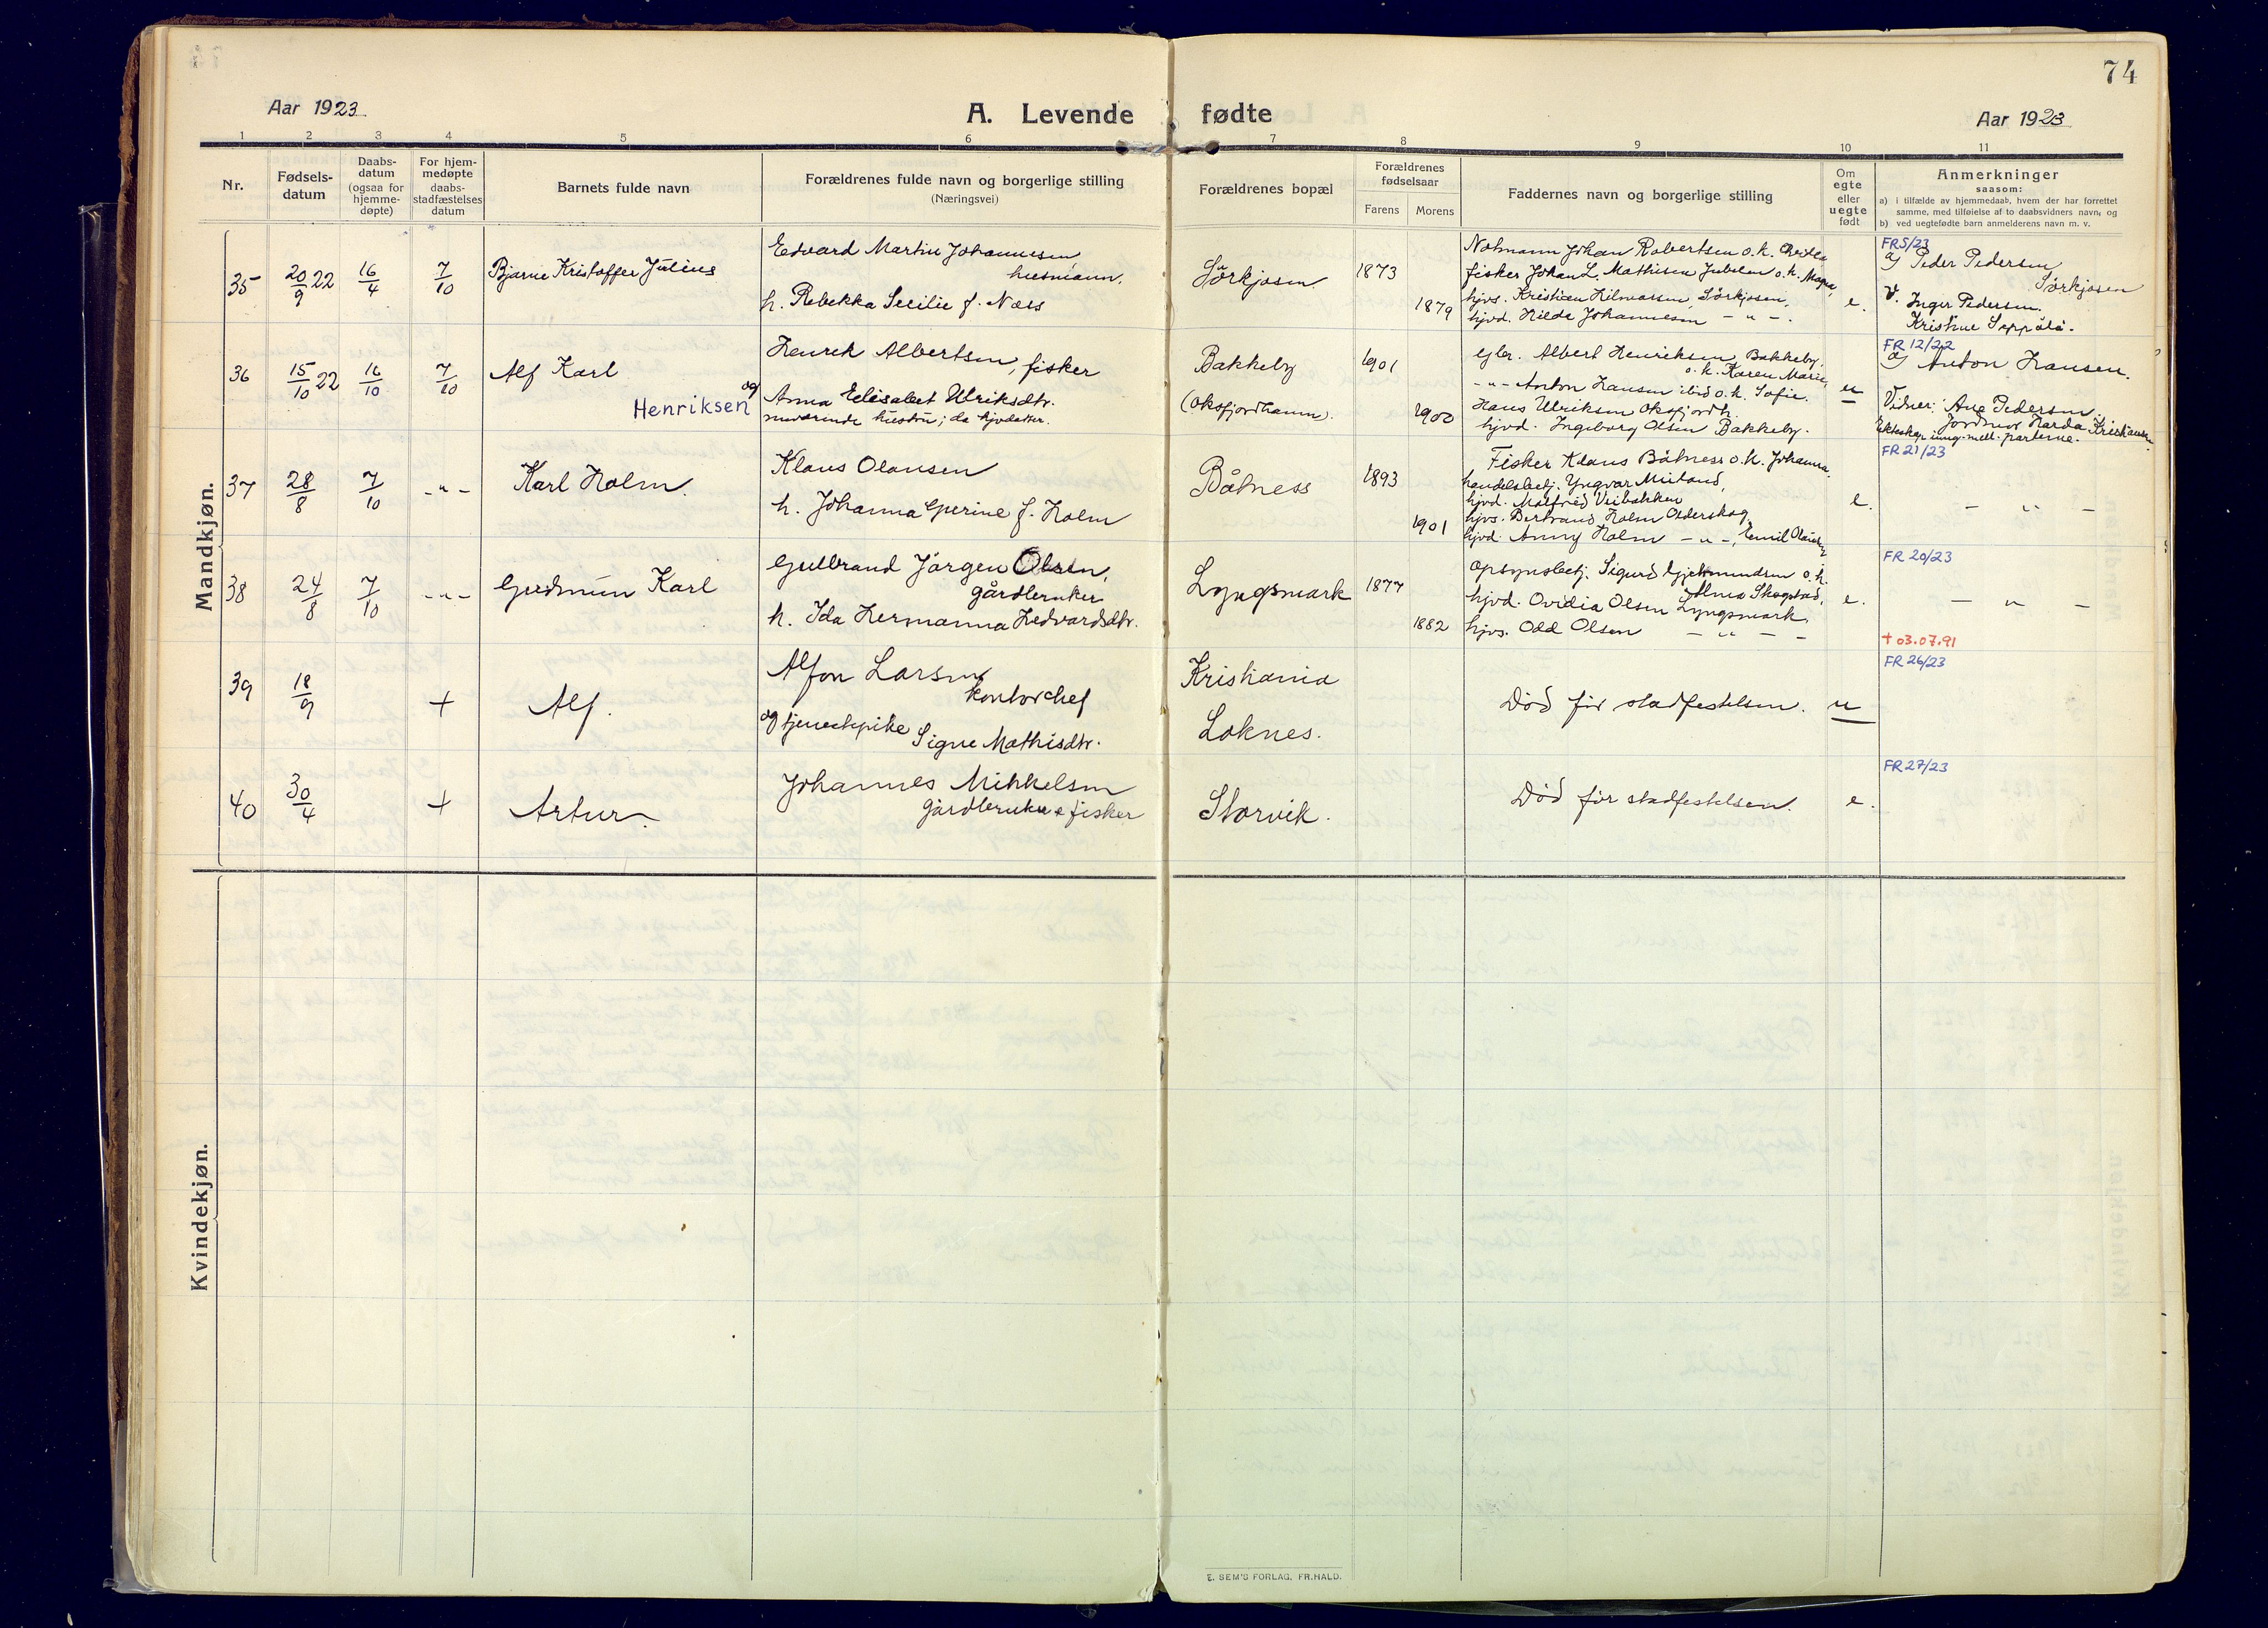 74
Aar 1923.
A. Levende fødte
Aar 1923
1 2 3 4 5 6 7 8 9 10 11
Nr.
Fødsels-
datum
Daabs-
datum
(ogsaa for
hjemme-
døpte)
For hjem-
medøpte
daabs-
stadfæstelses
datum
Barnets fulde navn
Forældrenes fulde navn og borgerlige stilling
(Næringsvei)
Forældrenes bopæl
Forældrenes
fødselsaar
Farens
Morens
Faddernes navn og borgerlige stilling
Om
egte
eller
uegte
født
Anmerkninger
saasom:
a) i tilfælde av hjemmedaab, hvem der har forrettet
samme, med tilføielse af to daabsvidners navn, og
b) ved uegtefødte barn anmelderens navn m. v.
Mandkjøn.
35
20/9 22
16/4
7/10
Bjarne Kristoffer Julius
Edvard Martin Johannesen
husmann.
h. Rebekka Secilie f. Næss
Sörkjosen
1873
1879
Notmann Johan Robertsen o.h.
fisker Johan L. Mathisen Jubelen o.h.
hjvs. Kristian Hilmarsen, Sörkjosen,
hjvd. Hilda Johannesen - " -.
e.
FR5/23
a) Peder Pedersen
Sörkjosen
V. Inger Pedersen.
Kristine Seppälä.
36
15/10 22
16/10
7/10
Alf Karl
Henriksen
Henrik Albertsen, fisker
og
Anna Elisabet Ulriksdtr.
nuværende hustru; da hjvdatter.
Bakkeby
(Oksfjordhamn).
1901
1900
gbr. Albert Henriksen, Bakkeby,
o. h. Karen Marie,
- " - Anton Hansen ibid o. h. Sofie.
Hans Ulriksen Oksfjordh.
hjvd. Ingeborg Olsen Bakkeby.
u
FR 12/22
a) Anton Hansen.
Vidner: Ane Pedersen
Jordmor Harda Kristiansen
Ekteskap inng. mell. partene.
37
28/8
7/10
- " -
Karl Holm.
Klaus Olausen
h. Johanna Gurine f. Holm
Båtness
1893
1901
Fisker Klaus Båtness o.h. Johanna,
handelsbetj. Yngvar Mirland,
hjvd. Malfrid Veibakken
hjvs. Bertrand Holm Olderskog,
hjvd. Anny Holm - " -, Emil
e.
FR 21/23
- " -
38
24/8
7/10
- " -
Gudmun Karl
Gulbrand Jörgen Olsen,
gårdbruker
h. Ida Hermanna Hedvardsdtr.
Lyngsmark
1877
1882
Opsynsbetj. Sigurd Gjetmundsen o.h.
Alma Skogstad,
hjvd. Ovidia Olsen Lyngsmark,
hjvs. Odd Olsen - " - -
e.
FR 20/23
- " -
+ 03.07.91
39
18/9
+
Alf.
Alfon Larsen
kontorchef
og tjenestepike Signe Mathisdtr.
Kristiania
Loknes.
Död för stadfestelsen.
u
FR 26/23
40
30/4
+
Artur
Johannes Mikkelsen
gårdbruker & fisker
Storvik.
Död för stadfestelsen.
e.
FR 27/23
Kvindekjøn.
E. SEM'S FORLAG, FR.HALD.